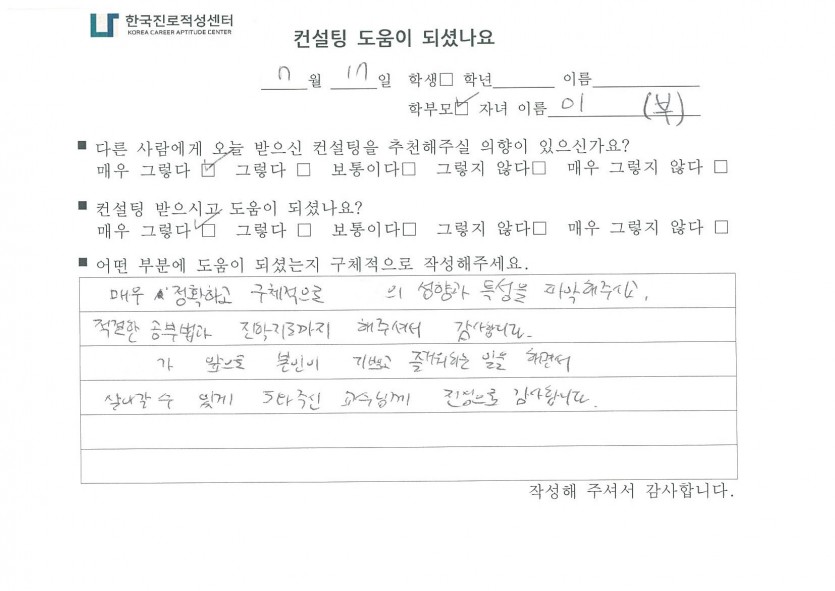 한국진로적성센터
KOREA CAREER APTITUDE CENTER
컨설팅 도움이 되셨나요
월 17일 학생□ 학년 이름
학부모☑ 자녀 이름 이 (부)
■ 다른 사람에게 오늘 받으신 컨설팅을 추천해주실 의향이 있으신가요?
매우 그렇다 ☑ 그렇다 □ 보통이다□ 그렇지 않다□ 매우 그렇지 않다 □
■ 컨설팅 받으시고 도움이 되셨나요?
매우 그렇다 ☑ 그렇다 □ 보통이다□ 그렇지 않다□ 매우 그렇지 않다 □
■ 어떤 부분에 도움이 되셨는지 구체적으로 작성해주세요.
매우 정확하고 구체적으로 의 성향과 특성을 파악해주시고,
적절한 공부법과 진학지도까지 해주셔서 감사합니다.
가 앞으로 본인이 기쁘고 즐거워하는 일을 하면서
살아갈 수 있게 도와주신 교수님께 진심으로 감사합니다.
작성해 주셔서 감사합니다.